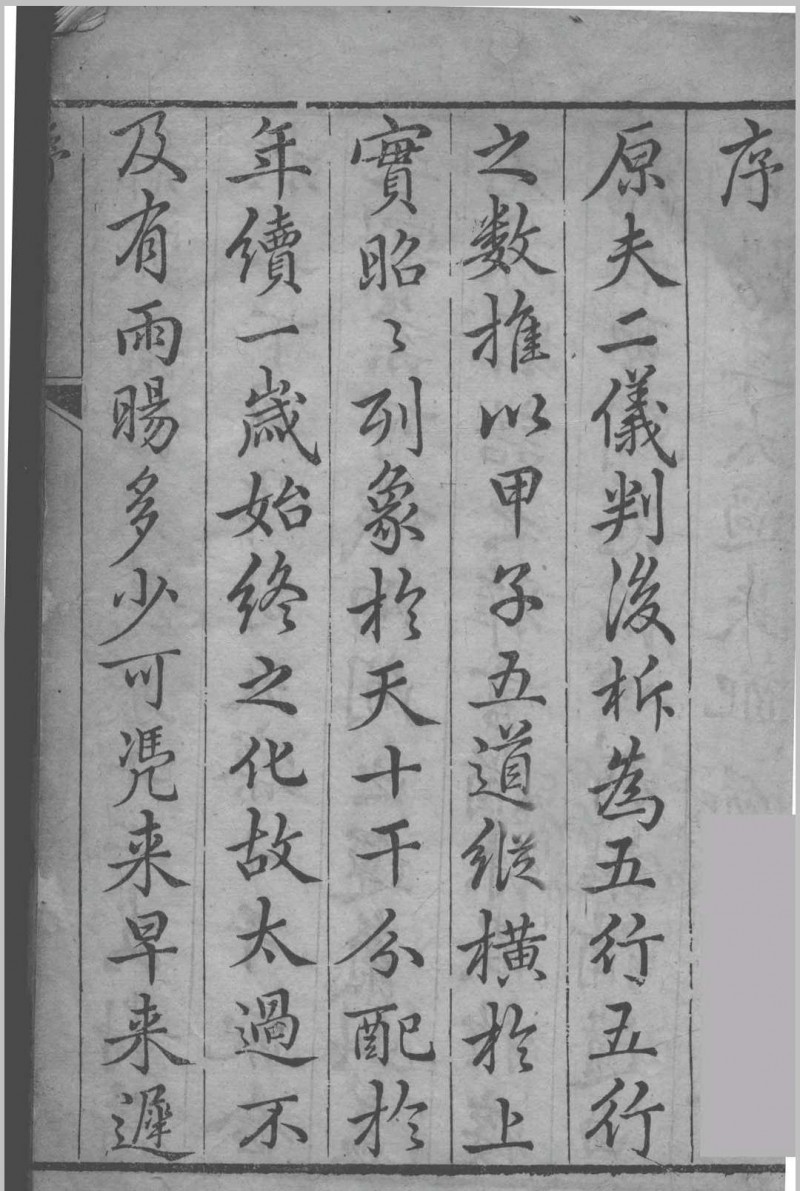 序
原夫二儀判後析為五行五行
之数推以甲子五道縱橫於上
實昭〻列象於天十干分配於
年續一歲始終之化故太過不
及有雨暘多少可凴来早来遲